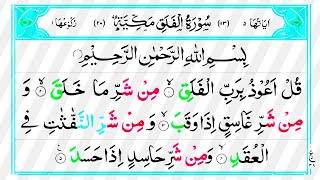 اٰيَاتُهَا ٥ (١١٣) سُوْرَةُ الْفَلَقِ مَكِّيَّةٌ (٢٠) رُكُوْعُهَا ١
بِسْمِ اللهِ الرَّحْمٰنِ الرَّحِيْمِ
قُلْ اَعُوْذُ بِرَبِّ الْفَلَقِ ۙ ١ مِنْ شَرِّ مَا خَلَقَ ۙ ٢
وَ مِنْ شَرِّ غَاسِقٍ اِذَا وَقَبَ ۙ ٣ وَ مِنْ شَرِّ النَّفّٰثٰتِ فِي
الْعُقَدِ ۙ ٤ وَ مِنْ شَرِّ حَاسِدٍ اِذَا حَسَدَ ٥